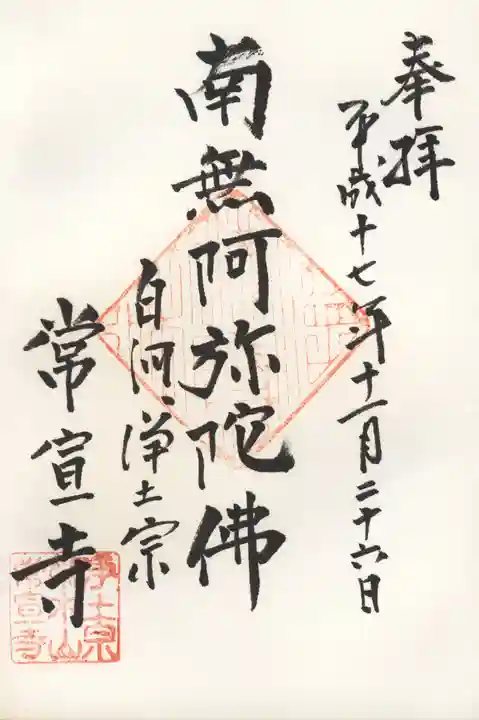 奉拝
平成十七年十一月二十六日
南無阿弥陀佛
白河浄土宗
常宣寺
浄土宗
常宣寺